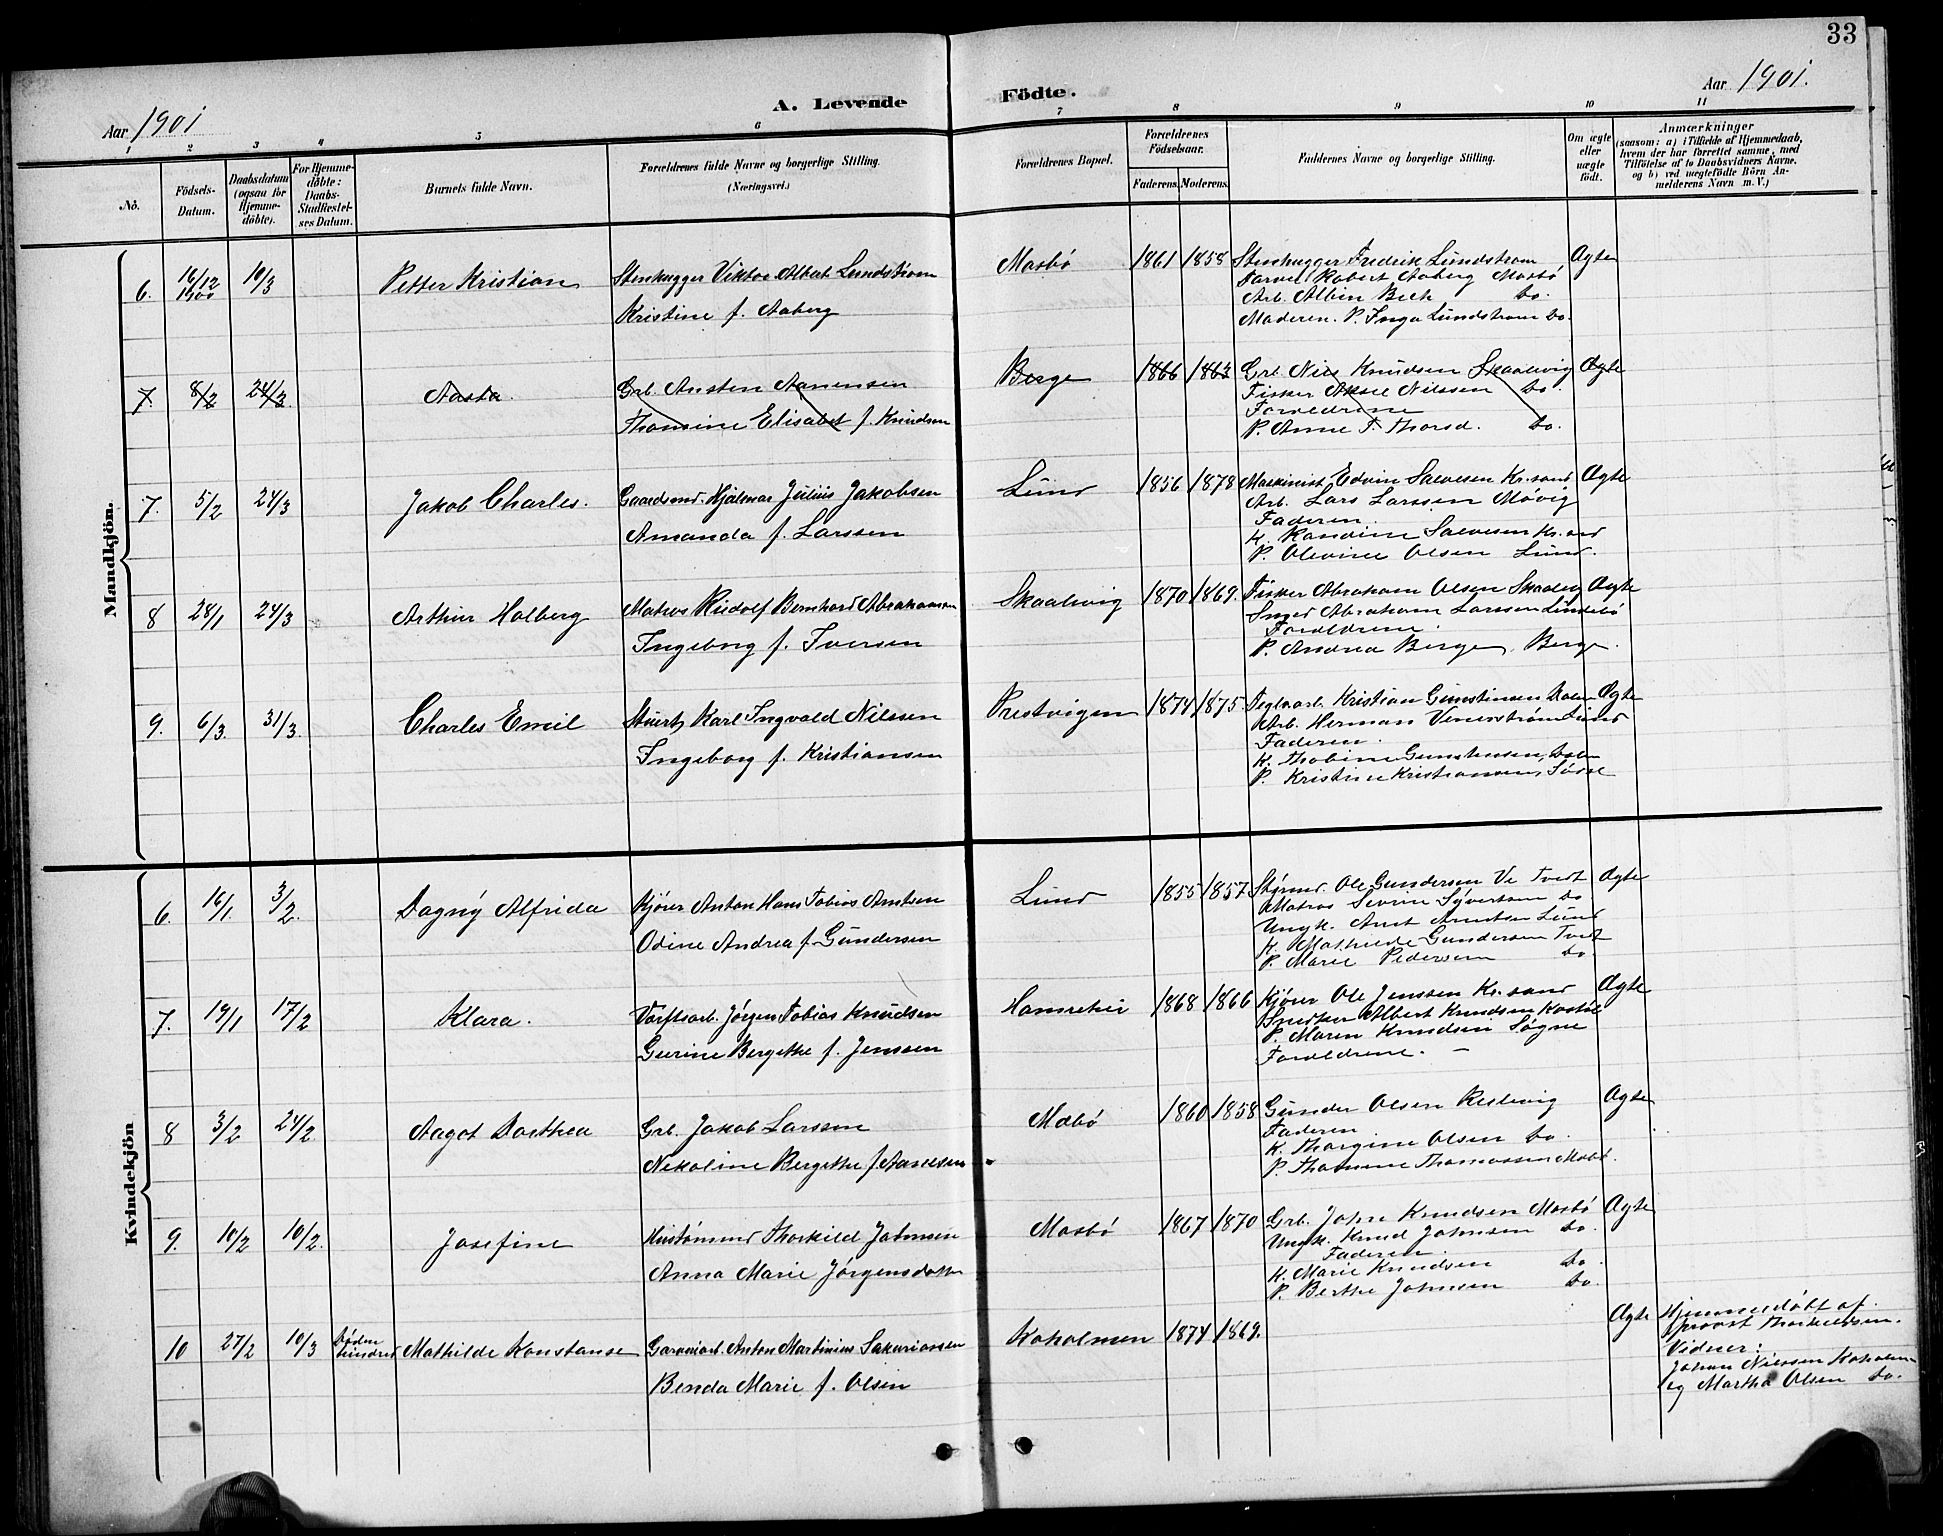 33
A. Levende Födte.
Aar 1901
Aar 1901.
1 2 3 4 5 6 7 8 9 10 11
No.
Födsels-Datum.
Daabsdatum (ogsaa for Hjemmedöbte).
For Hjemmedöbte: Daabs-Stadfestelses Datum.
Barnets fulde Navn.
Forældrenes fulde Navne og borgerlige Stilling. (Næringsvei.)
Forældrenes Bopæl.
Forældrenes Födselsaar.
Faderens. Moderens.
Faddernes Navne og borgerlige Stilling.
Om ægte eller uægte födt.
Anmærkninger
(saasom: a) i Tilfælde af Hjemmedaab, hvem der har forrettet samme, med Tilföielse af to Daabsvidners Navne. og b) ved uægtefödte Börn Anmelderens Navn m. V.)
Mandkjön.
6. 16/12 1900 10/3 Petter Kristian
Stenhugger Viktor Albert Lundstrøm
Kristine f. Aaberg
Mosbö 1861 1858
Stenhugger Fredrik Lundstrøm
Robert Aaberg Mosbö
Arb. Albin Beck do.
Moderen. P. Inga Lundstrøm do.
Ægte
7. 8/2 24/3. Aasta.
Grb. Austen Aanensen
Thomine Elisabet f. Knudsen
Berge 1866 1863
Grb. Nils Knudsen Skaalevig
Fisker Aksel Nilssen do.
Forældrene
P. Anne T. Thorsd. do.
Ægte
7. 5/2 24/3 Jakob Charles.
Gaardsmd. Hjalmar Julius Jakobsen
Amanda f. Larssen
Lund 1856 1878
Maskinist Edvin Salvesen Kr.sand
Arb. Lars Larssen Møvig
Faderen.
K. Randine Salvesen Kr.sand
P. Olevine Olsen Lund.
Ægte
8 28/1 24/3 Arthur Holberg
Matros Rudolf Bernhard Abrahamsen
Ingeborg f. Iversen
Skaalevig 1870 1869.
Fisker Abraham Olsen Skaalevig
Abraham Larssen Lindebö
Forældrene.
P. Andrea Berge, Berge.
Ægte
9. 6/3. 31/3. Charles Emil
Stuert Karl Ingvald Nilssen
Ingeborg f. Kristiansen
Prestvigen 1874 1875.
Teglv.arb. Kristian Gunstinsen
Arb. Herman Lund
Faderen.
K. Thobine Gunstensen,
P. Kristine Kristiansen,
Ægte
Kvindekjön
6. 16/1 3/2. Dagny Alfrida
Kjörer Anton Hans Tobias Arntsen
Odine Andrea f. Gundersen
Lund 1855 1857
Styrmd. Ole Gundersen Ve Tveit
Matros Severin Syvertsen do
Ungk. Arnt Arntsen Lund
K. Mathilde Gundersen Tveit
P. Marie Pedersen do.
Ægte
7. 19/1 17/2 Klara.
Værftsarb. Jörgen Tobias Knudsen
Gurine Bergithe f. Jenssen
1868 1866
Kjörer Ole Jenssen Kr.sand
Snedker Albert Knudsen
P. Maren Knudsen Søgne
Forældrene.
Ægte
8 3/2 24/2. Aagot Dorthea
Grb. Jakob Larssen
Nikoline Bergithe f. Aanensen
Mobö 1860 1858
Gunder Olsen Reslevig
Faderen
K. Thorgine Olsen do.
P. Thomine Thomassen Mobö.
Ægte
9. 10/2 10/2. Josefine
Hustömmer Thorkild Johnsen
Anna Marie Jörgensdatter
Mosbö 1867 1870
Grb. John Knudsen Mosbö
Ungk. Knud Johnsen do.
Faderen.
K. Marie Knudsen do.
P. Berthe Johnsen do.
Ægte
10 27/2 10/3 Mathilde Konstanse
Garveriarb. Anton Martinius Sakariassen
Benda Marie f. Olsen
Koholmen 1874 1869.
Ægte
Hjemmedöbt af
provst
Vidner:
Johan Nilssen Koholm
og Martha Olsen do.